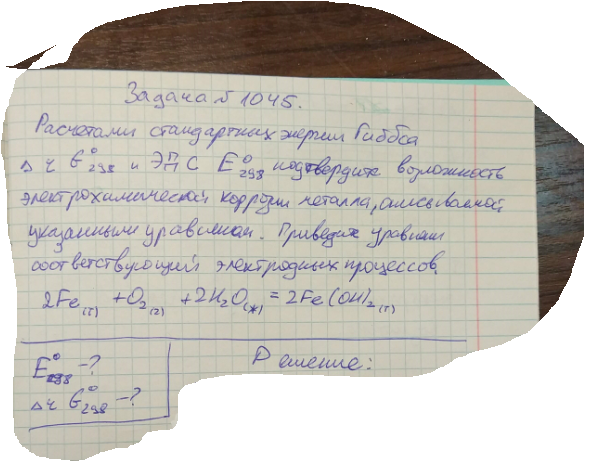 Задача № 1045.
Расчетами стандартных энергии Гиббса
Δч G°298 и ЭДС E°298 подтвердите возможность
электрохимической коррозии металла, описываемой
указанными уравнением. Приведите уравнения
соответствующий электродных процессов.
2Fe(т) + O2(г) + 2H2O(ж) = 2Fe(OH)2(т)
E°298 -?
Решение:
Δч G°298 -?